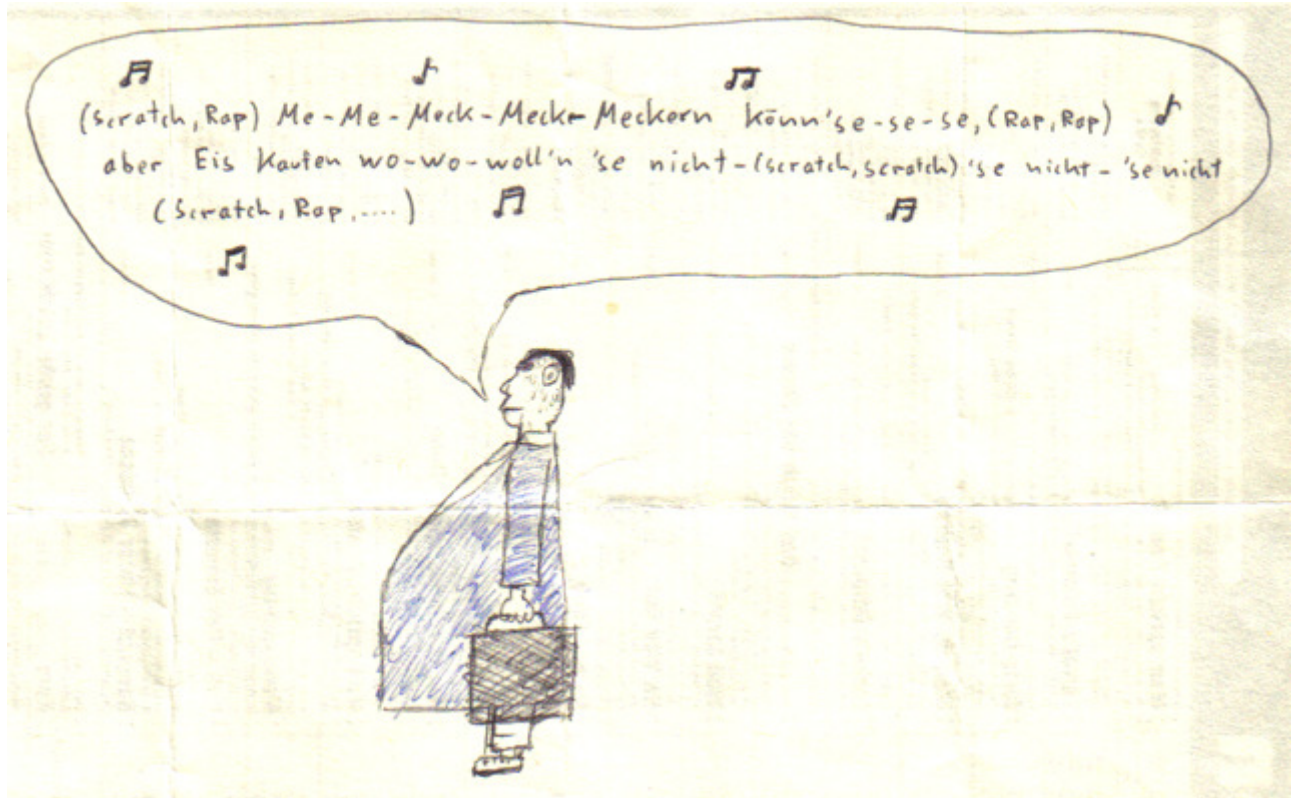 (Scratch, Rap) Me-Me-Meck-Mecke-Meckern könn'se-se-se, (Rap, Rap)
aber Eis Kaufen wo-wo-woll'n 'se nicht-(scratch, scratch) 'se nicht-'se nicht
(Scratch, Rap, ....)